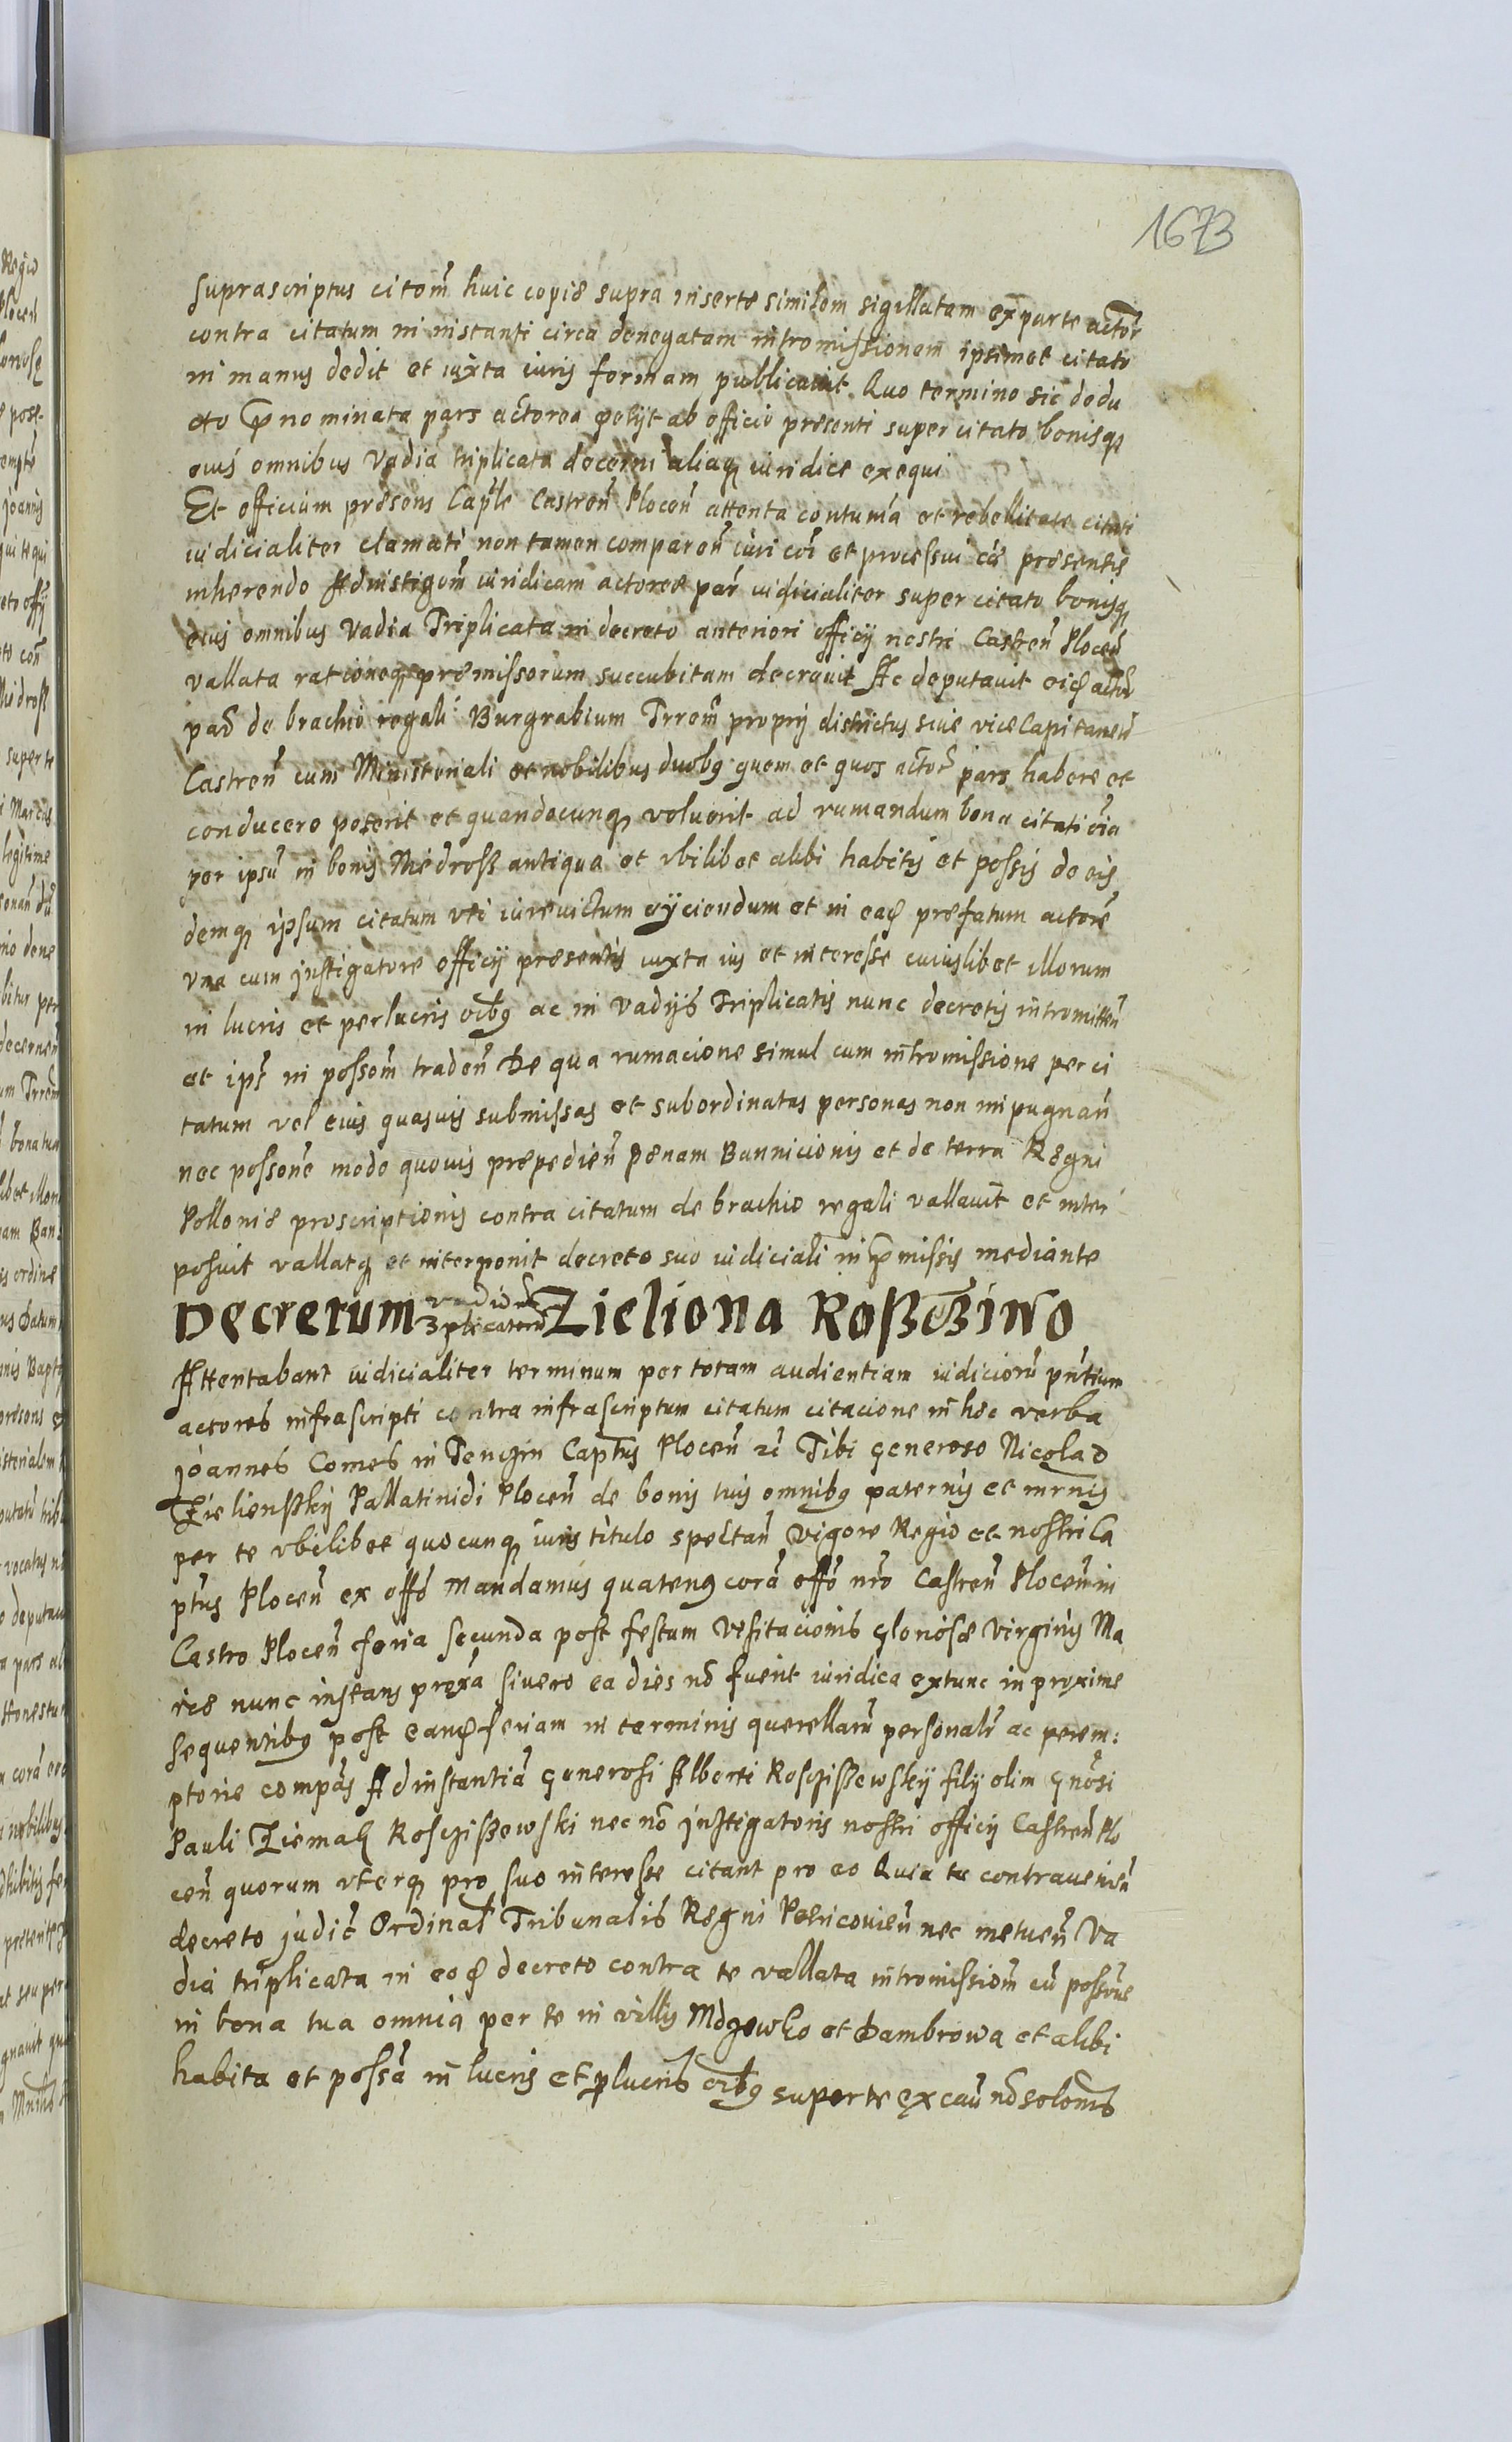 1673
suprascriptus citom̃ huic copiæ supra inserte similem sigillatam ex parte actor̃
contra citatum in instanti circa denegatam intromissionem ipsimet citato
in manus dedit et iuxta iuris formam publicauit Quo termino sic dedu
cto p̃nominata pars actorea petijt ab officio præsenti super citato bonisq3
eius omnibus Vadia triplicata decerni aliaq3 iuridice exequi
Et officium præsens Cap̃le Castreñ Ploceñ attenta contuma et rebellitate citati
iudicialiter clamati non tamen compareñ iuri et processui præsentis
inherendo Ad instigom̃ iuridicam actoreæ par̃ iudicialiter super citato bonisq3
eius omnibus Vadia Triplicata in decreto anteriori officij nostri Castreñ Ploceñ
vallata rationeq3 præmissorum succubitam decreuit Ac deputauit actor̃
par̃ de brachio regali Burgrabium Trrem̃ proprij districtus siue viceCapitaneu
Castreñ cum Ministeriali et nobilibus duob9 quem et quos actor̃ pars habere et
conducere poterit et quandocunq3 voluerit ad rumandum bona citati o͂ia
per ipsũ in bonis Medross antiqua et vbilibet alibi habitis et possis de eis
demq3 ipsum citatum vti iurevictum eijciendum et in præfatum actore͂
vna cum jnstigatore officij præsentis iuxta ius et interesse cuiuslibet illorum
in lucris et perlucris oib9 ac in Vadijs Triplicatis nunc decretis intromitteñ
et ip̃s in possom̃ tradeñ De qua rumacione simul cum intromissione per ci
tatum vel eius quasuis submissas et subordinatas personas non impugnañ
nec possone͂ modo quouis præpedieñ pænam Bannicionis et de terra Regni
Polloniæ proscriptionis contra citatum de brachio regali vallauit et inter
posuit vallatq3 et interponit decreto suo iudiciali in p̃missis mediante
Decretum vadiorũ 3plicatorũ Zieliona Roßczißewo
Attentabant iudicialiter terminum per totam audientiam iudiciorũ pn̄tium
actores infrascripti contra infrascriptum citatum citacione in hæc verba
Joannes Comes in Tenczin Capt̃us Ploceñ Tibi generoso Nicolao
Zielienßkij Pallatinidi Ploceñ de bonis tuis omnib9 paternis et mrnis
per te vbilibet quocunq3 iuris titulo spectañ Vigore Regio et nostri Ca
pt̃us Ploceñ ex offo mandamus quaten9 corã offo nr̃o Castreñ Ploceñ in
Castro Ploceñ feria secunda post festum Visitacionis gloriosæ Virginis Ma
riæ nunc instans proxa siuero ea dies nõ fuerit iuridica extunc in proxime
sequentib9 post feriam in terminis querellarũ personalr̃ ac perem:
ptorie compãs Ad instantiã generosi Alberti Rosczißewskij filij olim gnõsi
Pauli Ziemak Rosczißewski nec nõ jnstigatoris nostri officij Castreñ Plo
ceñ quorum vterq3 pro suo interesse citant pro eo Quia tu contraueñ
decreto judic̃ Ordinal̃ Tribunalis Regni Petricouieñ nec metueñ Va
dia triplicata in decreto contra te vallata intromissiom̃ cũ possone
in bona tua omnia per te in villis et Dambrowa et alibi
habita et possã in lucris et plucris oib9 super te ex caũ